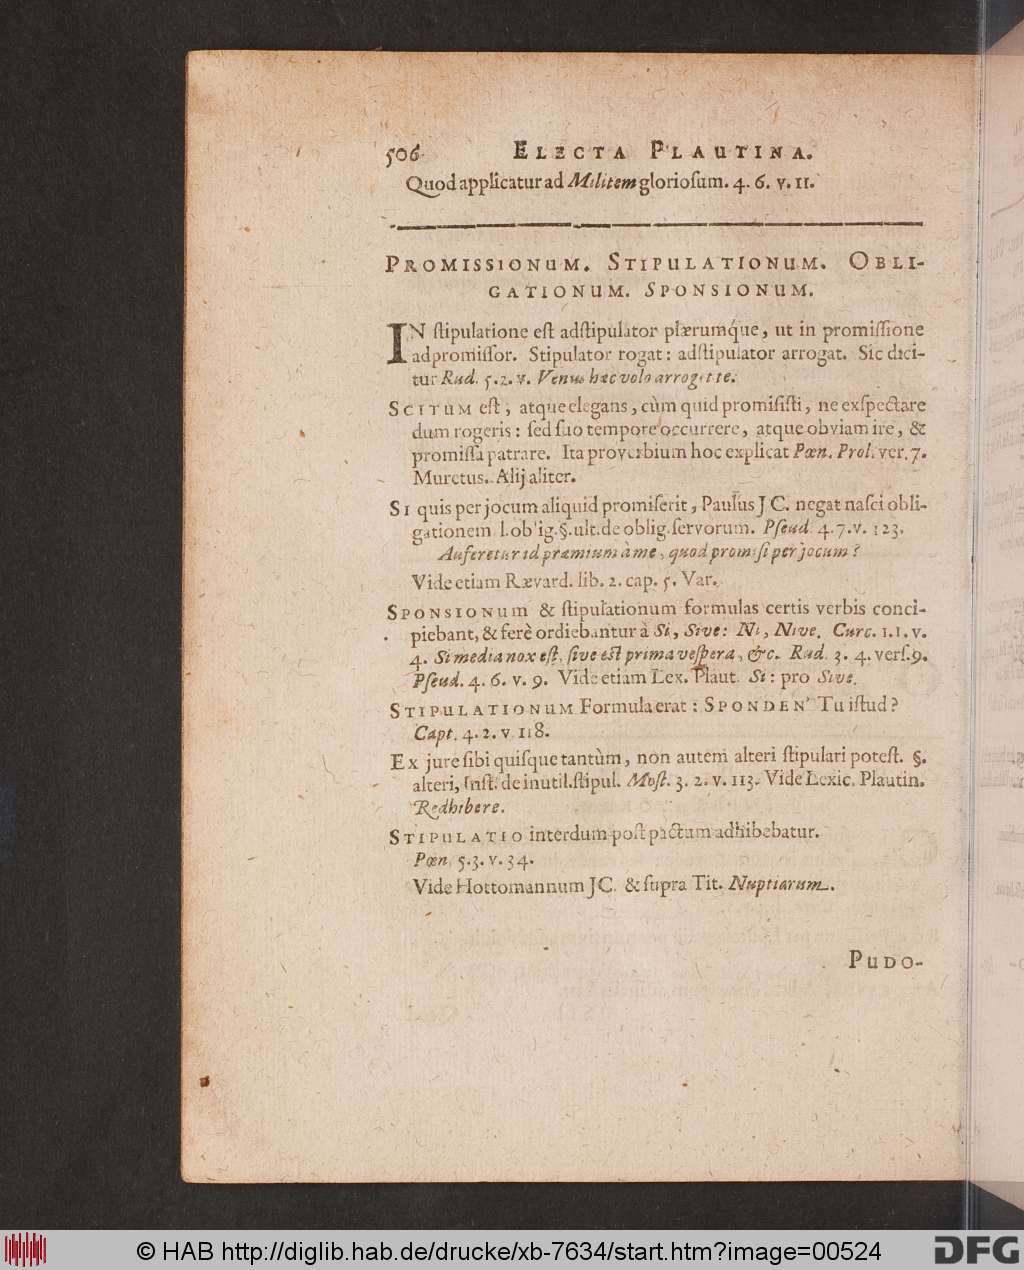 506 ELECTA PLAUTINA.
Quod applicatur ad Militem glorioſum. 4. 6. v. 11.
PROMISSIONUM. STIPULATIONUM. OBLI-
GATIONUM. SPONSIONUM.
IN ſtipulatione eſt adſtipulator plærumq́ue, ut in promiſſione
adpromiſſor. Stipulator rogat: adſtipulator arrogat. Sic dici-
tur Rud. 5. 2. v. Venus hæc volo arroget te.
SCITUM eſt, atque elegans, cùm quid promiſiſti, ne exſpectare
dum rogeris: ſed ſuo tempore occurrere, atque obviam ire, &
promiſſa patrare. Ita proverbium hoc explicat Pœn. Prol. ver. 7.
Muretus. Alij aliter.
SI quis per jocum aliquid promiſerit, Paulus JC. negat naſci obli-
gationem l. oblig. §. ult. de oblig. ſervorum. Pſeud. 4. 7. v. 123.
Auferetur id præmium à me, quod promiſi per jocum?
Vide etiam Rævard. lib. 2. cap. 5. Var.
SPONSIONUM & ſtipulationum formulas certis verbis conci-
piebant, & ferè ordiebantur à Si, Sive: Ni, Nive. Curc. 1. 1. v.
4. Si media nox eſt, ſive eſt prima veſpera, &c. Rud. 3. 4. verſ. 9.
Pſeud. 4. 6. v. 9. Vide etiam Lex. Plaut. Si: pro Sive.
STIPULATIONUM Formula erat: SPONDEN' Tu iſtud?
Capt. 4. 2. v. 118.
EX jure ſibi quiſque tantùm, non autem alteri ſtipulari poteſt. §.
alteri, Inſt. de inutil. ſtipul. Moſt. 3. 2. v. 113. Vide Lexic. Plautin.
Redhibere.
STIPULATIO interdum poſt pactum adhibebatur.
Pœn. 5. 3. v. 34.
Vide Hottomannum JC. & ſupra Tit. Nuptiarum.
PUDO-
© HAB http://diglib.hab.de/drucke/xb-7634/start.htm?image=00524
DFG